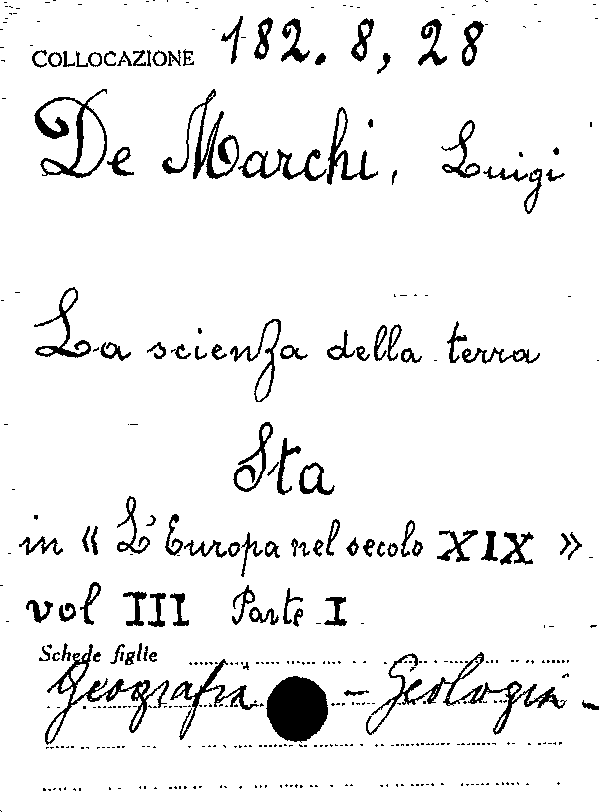 COLLOCAZIONE 182. 8, 28
De Marchi, Luigi
La scienza della terra
Sta
in « L'Europa nel secolo XIX »
vol III Parte I
Schede figlie
Geografia - Geologia -